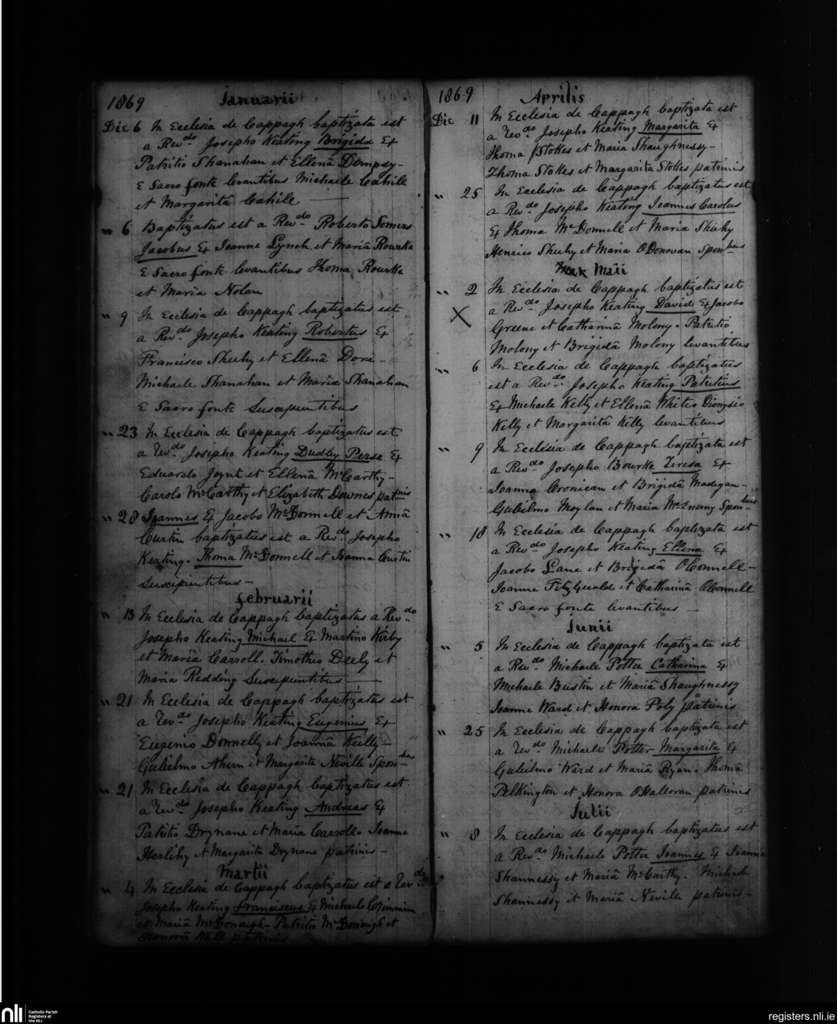 1869 Januarii
Die 6 In Ecclesia de Cappagh baptizata est
a Revdo Josepho Keating Brigida Ex
Patritio Shanahan et Ellenâ Dempsy -
E Sacro fonte levantibus Michaele Cahile
et Margaritâ Cahile
" 6 Baptizatus est a Revdo Roberto Somers
Jacobus Ex Joanne Lynch et Mariâ Rourke
E Sacro fonte levantibus Thoma Rourke
et Maria Nolan
" 9 In Ecclesia de Cappagh baptizatus est
a Revdo Josepho Keating Robertus Ex
Francisco Sheehy et Ellenâ Dore -
Michaele Shanahan et Mariâ Shanahan
E Sacro fonte Suscipientibus
" 23 In Ecclesia de Cappagh baptizatus est
a Revdo Josepho Keating Dudley Perse Ex
Eduardo Joynt et Ellenâ McCarthy -
Carolo McCarthy et Elizabeth Downes patrinis
" 28 Joannes Ex Jacobo McDonnell et Annâ
Curtin baptizatus est a Revdo Josepho
Keating. Thoma McDonnell et Joanna Curtin
Suscipientibus -
Februarii
" 13 In Ecclesia de Cappagh baptizatus a Revdo
Josepho Keating Michael Ex Martino Kirby
et Mariâ Carroll. Timotheo Deely et
Maria Redding Suscipientibus
" 21 In Ecclesia de Cappagh baptizatus est
a Revdo Josepho Keating Eugenius Ex
Eugenio Donnelly et Joannâ Kielly -
Gulielmo Ahern et Margarita Neville Sponsibus
" 21 In Ecclesia de Cappagh baptizatus est
a Revdo Josepho Keating Andreas Ex
Patritio Drynane et Maria Carroll. Joanne
Herlihy et Margarita Drynane patrinis -
Martii
" 4 In Ecclesia de Cappagh baptizatus est a Revdo
Josepho Keating Franciscus Ex Michaele
et Mariâ McDonagh - Patritio McDonnogh et
Honorâ patrinis
1869 Aprilis
Die 11 In Ecclesia de Cappagh baptizata est
a Revdo Josepho Keating Margarita Ex
Thoma Stokes et Maria Shaughnessy -
Thoma Stokes et Margarita Stokes patrinis
" 25 In Ecclesia de Cappagh baptizatus est
a Revdo Josepho Keating Joannes Carolus
Ex Thoma McDonnell et Maria Sheehy
Henrico Sheehy et Maria O'Donovan Sponsibus
Maii
" 2 In Ecclesia de Cappagh baptizatus est
X a Revdo Josepho Keating David Ex Jacobo
Greene et Catharinâ Molony. Patritio
Molony et Brigidâ Molony levantibus
" 6 In Ecclesia de Cappagh baptizatus
est a Revdo Josepho Keating Patritius
Ex Michaele Kelly et Ellenâ White. Dionysio
Kelly et Margaritâ Kelly levantibus
" 9 In Ecclesia de Cappagh baptizata est
a Revdo Josepho Bourke Teresa Ex
Joanne Cronican et Brigidâ Madigan -
Gulielmo Moylan et Maria McInerny Sponsibus
" 18 In Ecclesia de Cappagh baptizata est
a Revdo Josepho Keating Ellena Ex
Jacobo Lane et Brigidâ O'Connell -
Joanne FitzGerald et Catharinâ O'Connell
E Sacro fonte levantibus -
Junii
" 5 In Ecclesia de Cappagh baptizata est
a Revdo Michaele Potter Catharina Ex
Michaele Bustin et Mariâ Shaughnessy
Joanne Ward et Honora Poly patrinis
" 25 In Ecclesia de Cappagh baptizata est
a Revdo Michaele Potter Margarita Ex
Gulielmo Ward et Mariâ Ryan. Thomâ
Pelkington et Honora O'Halloran patrinis
Julii
" 8 In Ecclesia de Cappagh baptizatus est
a Revdo Michaele Potter Joannes Ex Joanne
Shannessy et Mariâ McCarthy. Michaele
Shannessy et Maria Neville patrinis -
nli Catholic Parish
Registers at
the NLI
registers.nli.ie